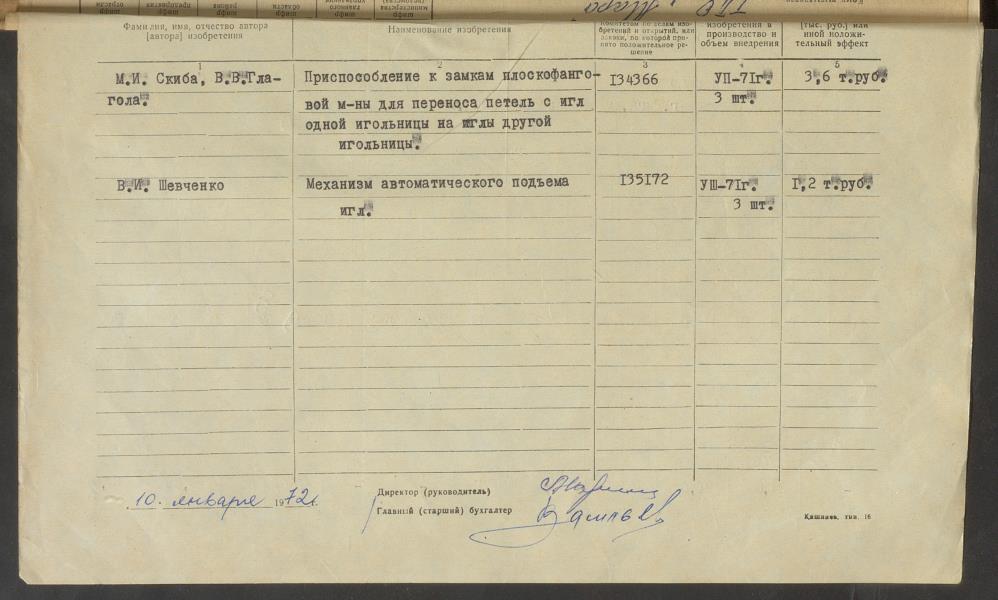 Фамилия, имя, отчество автора
[автора] изобретения
Наименование изобретения
Комитетом по делам изо-
бретений и открытий, или
заявки, по которой при-
нято положительное ре-
шение
изобретения в
производство и
объем внедрения
(тыс. руб.) или
иной положи-
тельный эффект
1 2 3 4 5
М.И. Скиба, В.В.Гла-
гола.
Приспособление к замкам плоскофанго-
вой м-ны для переноса петель с игл
одной игольницы на иглы другой
игольницы.
134366
УП-71г.
3 шт.
3,6 т.руб.
В.И. Шевченко
Механизм автоматического подъема
игл.
135172
УШ-71г.
3 шт.
1,2 т.руб.
10. января 1972г.
Директор (руководитель)
Главный (старший) бухгалтер
Кишинев, тип. 16